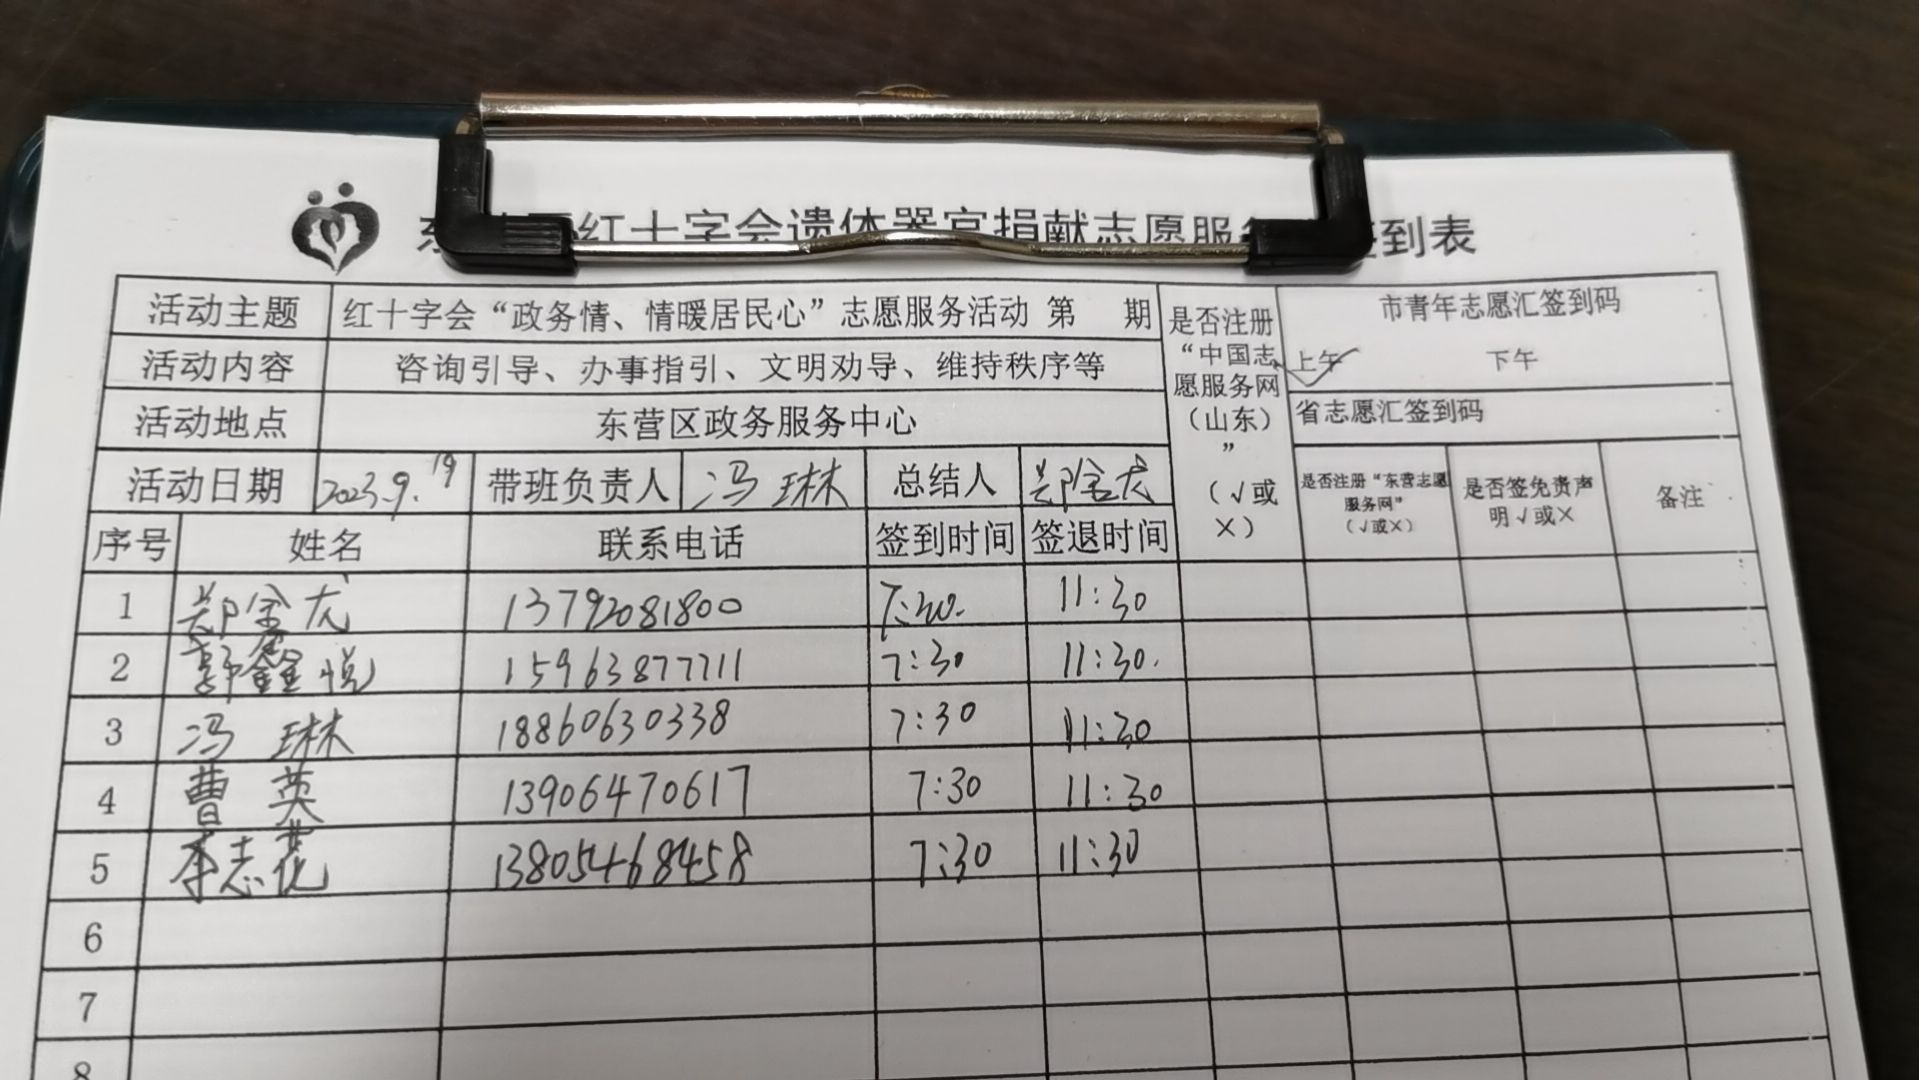 红十字会遗体器官捐献志愿服务 签到表
活动主题 红十字会“政务情、情暖居民心”志愿服务活动 第 期 是否注册“中国志愿服务网（山东）”（√或×） 市青年志愿汇签到码
活动内容 咨询引导、办事指引、文明劝导、维持秩序等 上午√ 下午
活动地点 东营区政务服务中心 省志愿汇签到码
活动日期 2023.9.19 带班负责人 冯琳 总结人 郑金龙 是否注册“东营志愿服务网”（√或×） 是否签免责声明√或× 备注
序号 姓名 联系电话 签到时间 签退时间
1 郑金龙 13792081800 7:30. 11:30
2 郭鑫悦 15963877711 7:30 11:30.
3 冯琳 18860630338 7:30 11:30
4 曹英 13906470617 7:30 11:30
5 李志花 13805468458 7:30 11:30
6
7
8